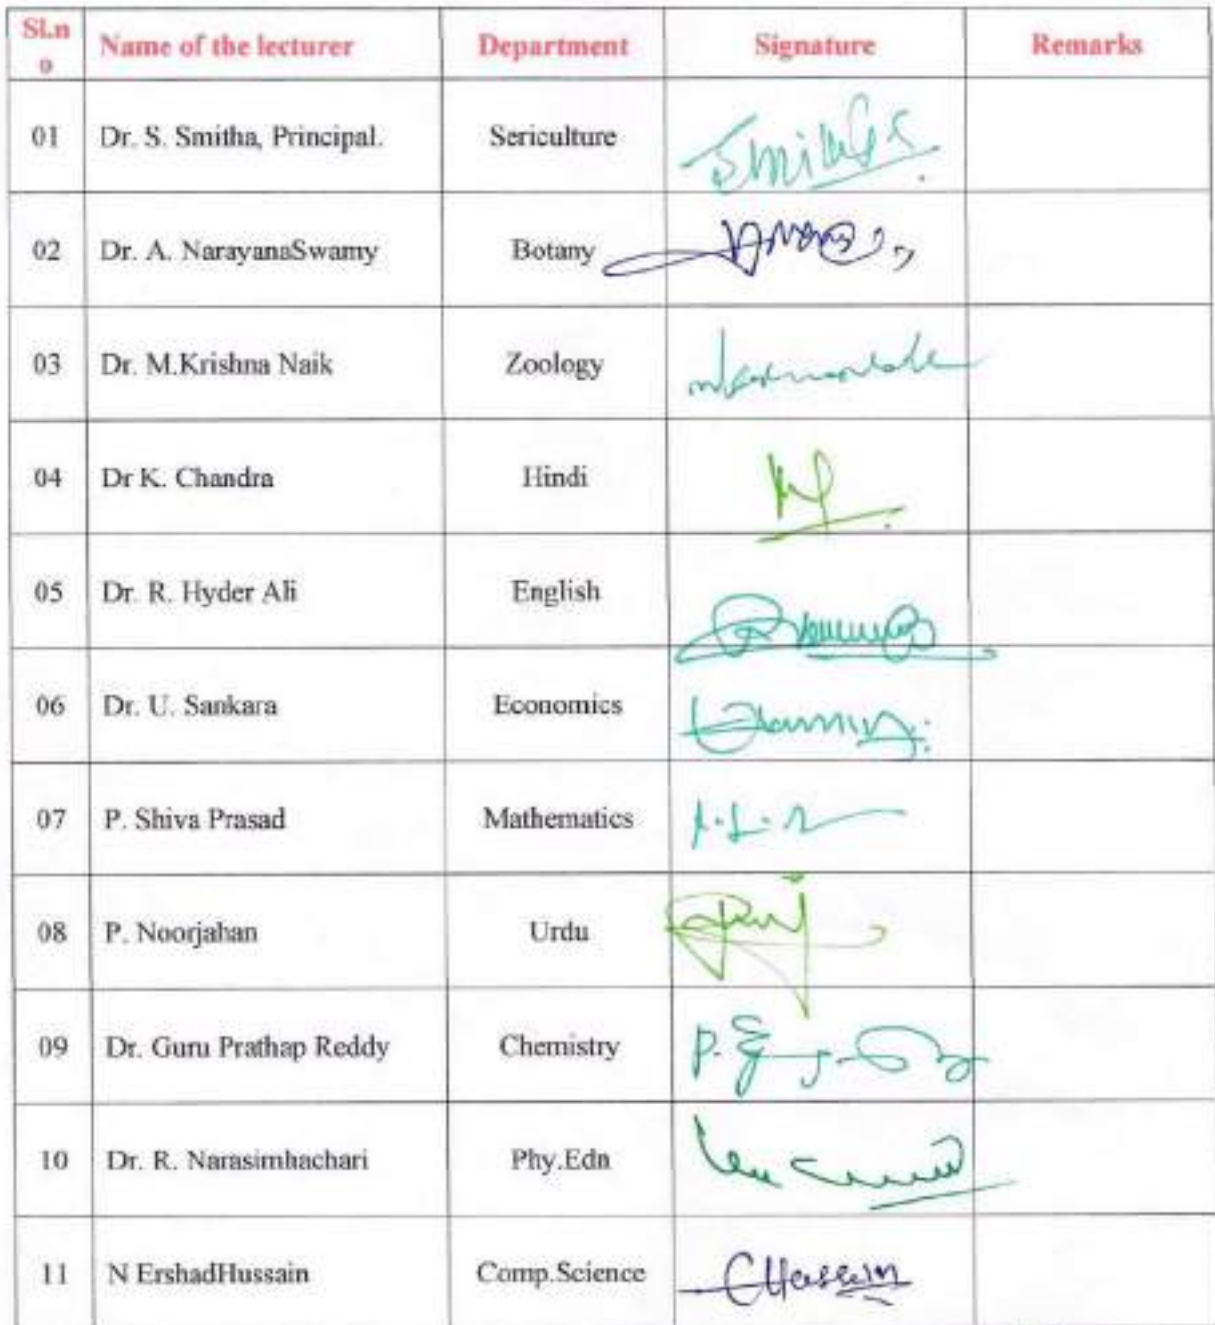 Sl.n
o
Name of the lecturer Department Signature Remarks
01 Dr. S. Smitha, Principal. Sericulture
02 Dr. A. NarayanaSwamy Botany
03 Dr. M.Krishna Naik Zoology
04 Dr K. Chandra Hindi
05 Dr. R. Hyder Ali English
06 Dr. U. Sankara Economics
07 P. Shiva Prasad Mathematics
08 P. Noorjahan Urdu
09 Dr. Guru Prathap Reddy Chemistry
10 Dr. R. Narasimhachari Phy.Edn
11 N ErshadHussain Comp.Science